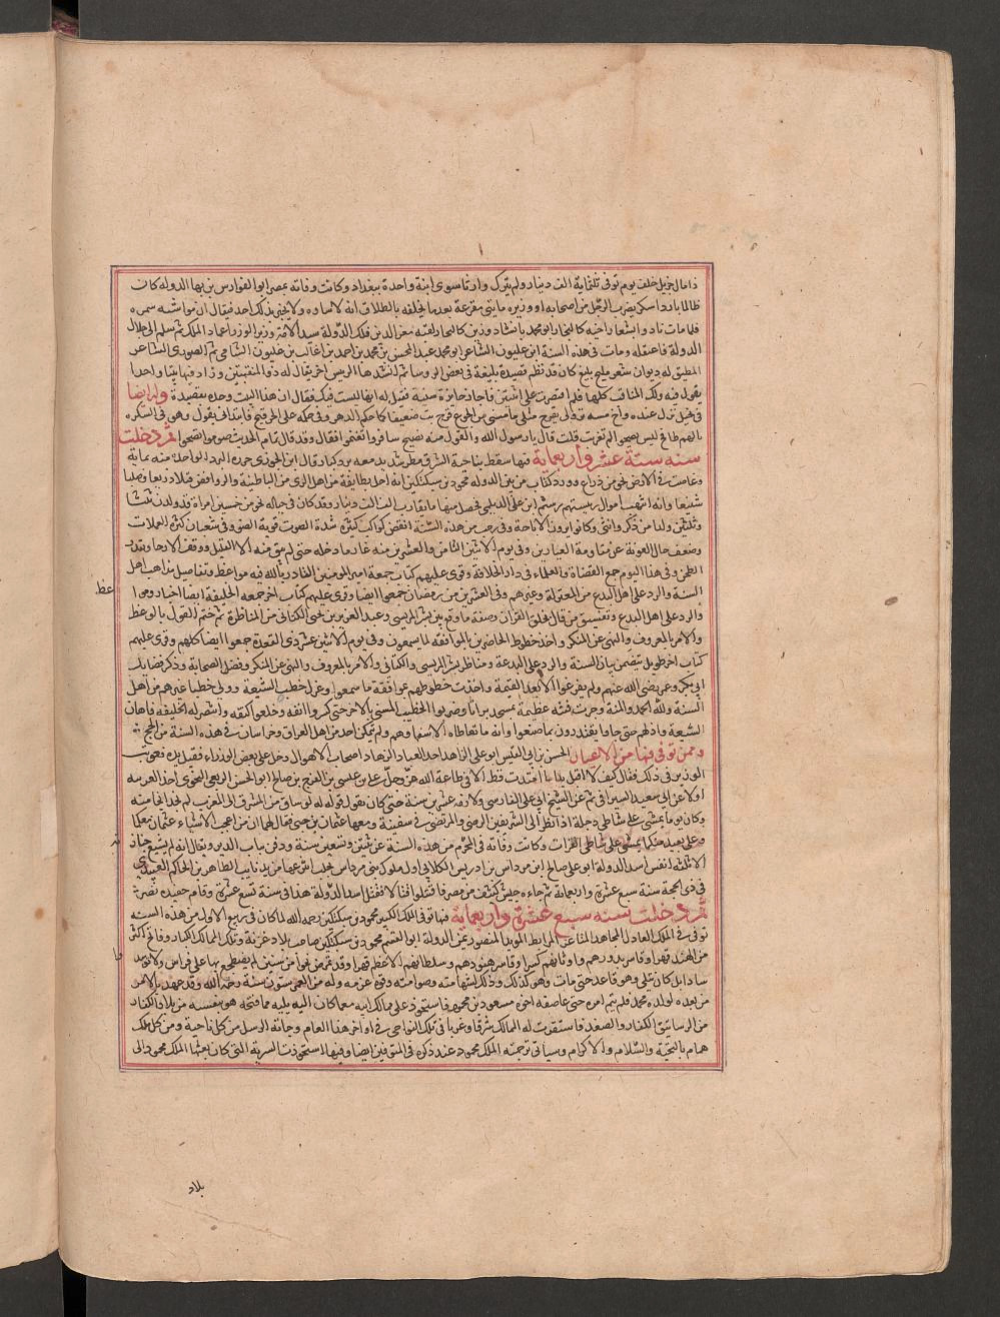 ذا مال جزيل خلف يوم توفى ثلثماية الف دينار ولم يترك وارثا سوى ابنة واحدة ببغداد وكانت وفاته بمصر ابو الفوارس بن بها الدوله كان
ظالما بارد اسكر يضرب الرجل من اصحابه او وزيره مايتى مقرعة بعد ما يحلفه بالطلاق انه لا يتاوه ولا يخبر بذلك احد فيقال ان حواشيه سموه
فلما مات نادوا بشعار اخيه كاليجار ابو محمد
الدولة فاعتقله ومات فى هذه السنة ابن غليون الشاعر ابو محمد عبد المحسن بن محمد بن احمد بن غالب بن غليون الشامى ثم الصورى الشاعر
المطبق له ديوان شعر مليح بليغ كان قد نظم قصيدة بليغة فى بعض الروسا ثم انشدها لريس اخر يقال له ذو المنقبتين وزاد فيها بيتا واحدا
يقول فيه ولك المناقب كلها فلم اقتصرت على اثنتين فاجازه جايزة سنية فقيل له انها ليست فيك فقال ان هذا البيت وحده بقصيدة وله ايضا
فى بخيل نزل عنده واخ مسه نزولى بقرح مثل ما مسنى من الجوع قرح بت ضيفا له كما حكم الدهر وفى حكمه على الحر قبح فابتدانى يقول وهو فى السكره
بالهم طافح ليس يصحوا لم تغربت قلت قال رسول الله والقول منه نصح سافروا تغنموا فقال وقد قال تمام الحديث صوموا تصحوا ثم دخلت
سنه ستة عشر واربعماية فيها سقط بناحية الشرق مطر شديد معه برد كبار قال ابن الجوزى حزرت البرد الواحدة منه بماية
وغاصت فى الارض نحو من ذراع وورد كتاب من يمين الدوله محمود بن سبكتكين انه احل بطايفة من اهل الرى من الباطنية والروافض قتلا ذريعا وصلبا
شنيعا وانه انتهب اموال رييسهم رستم ابن على الديلمى فحصل منها ما يقارب الف الف دينار وقد كان فى حباله نحو من خمسين امراة قد ولدن له ثلثا
وثلثين ولدا من ذكر وانثى وكانوا يرون الاباحة وفى رجب من هذه السنة انقض كواكب كثيرة شديدة الصوت قوية الضو وفى شعبان كثرت العملات
وضعف حال العونة عن مقاومة العيارين وفى يوم الاثنين الثامن والعشرين منه غار ما دجله حتى لم يبق منه الا القليل ووقفت الارحا وتعذر
الطحن وفى هذا اليوم جمع القضاة والعلماء فى دار الخلافة وقرى عليهم كتاب جمعه امير المومنين القادر بالله فيه مواعظ وتفاصيل مذاهب اهل
السنة والرد على اهل البدع من المعتزلة وغيرهم وفى العشرين من رمضان جمعوا ايضا وقرى عليهم كتاب اخر جمعه الخليفة ايضا اخبار ومواعظ
والرد على اهل البدع وتفسيق من قال بخلق القران وصفة ما وقع بين بشر المريسى وعبد العزيز بن يحيى الكتانى من المناظرة ثم ختم القول بالوعظ
والامر بالمعروف والنهى عن المنكر واخذ خطوط الحاضرين بالموافقه لما سمعوه وفى يوم الاثنين غرة ذى القعدة جمعوا ايضا كلهم وقرى عليهم
كتاب اخر طويل يتضمن بيان السنة والرد على البدعة ومناظرة بشر المريسى والكتانى والامر بالمعروف والنهى عن المنكر وفضل الصحابة وذكر فضايل
ابى بكر وعمر رضى الله عنهم ولم يفرغوا الا بعد العتمة واخذت خطوطهم بموافقة ما سمعوا وعزل خطيب الشيعة وولى خطيبا غيرهم من اهل
السنة ولله الحمد والمنة وجرت فتنه عظيمة بمسجد براثا وضربوا الخطيب السنى بالاجر حتى كسروا انفه وخلعوا كتفه وانتصر له الخليفه فاهان
الشيعة واذلهم حتى جاوا يعتذرون بما صنعوا وانه ما تعاطاه الا سفهاوهم ولم يتمكن احد من اهل العراق وخراسان فى هذه السنة من الحج
وممن توفى فيها من الاعيان الحسن بن ابى القيس ابو على الزاهد احد العباد الزهاد اصحاب الاحوال دخل على بعض الوزراء فقبل يده فعوتب
الوزير فى ذلك فقال كيف لا اقبل يدا ما امتدت قط الا فى طاعة الله عز وجل على بن عيسى بن الفرج بن صالح ابو الحسن الربعى النحوى اخذ العربيه
اولا عن ابى سعيد السيرافى ثم عن الشيخ ابى على الفارسى ولازمه عشرين سنة حتى كان يقول قولوا له لو ساق من المشرق الى المغرب لم تجد انحا منه
وكان يوما يمشى على شاطى دجلة اذ نظر الى الشريفين الرضى والمرتضى فى سفينة ومعهما عثمان بن جنى فقال لهما ان من اعجب الاشياء عثمان معكما
وعلى بعيد عنكما يمشى على شاطى الفرات وكانت وفاته فى المحرم من هذه السنة عن ثنتين وتسعين سنة ودفن بباب الدير ويقال انه لم يتبع جنازته
الا ثلثة انفس اسد الدولة ابو على صالح ابن مرداس بن ادريس الكلابى اول ملوك بنى مرداس بحلب انتزعها من يد نايب الظاهر بن الحاكم العبيدى
فى ذى الحجة سنة سبع عشرة واربعماية ثم جاءه جيش كثيف من مصر فاقتتلوا فقتل اسد الدولة هذا فى سنة تسع عشرة وقام حفيده نصر
ثم دخلت سنه سبع عشرة واربعماية فيها توفى الملك الكبير محمود بن سبكتكين رحمه الله لما كان فى ربيع الاول من هذه السنه
توفى الملك العادل المجاهد المثاغر المرابط المويد المنصور يمين الدولة ابو القسم محمود بن سبكتكين صاحب بلاد غزنة وتلك الممالك الكبار وفاتح اكثر
من الهند قهرا وكاسر بدورهم واوثانهم كسرا وقاهر هنودهم وسلطانهم الاعظم قهرا وقد تمرض نحوا من سنتين لم يضطجع بها على فراش ولا توسد
سادا بل كان يتكى وهو قاعد حتى مات وهو كذلك وذلك لشهامته وصرامته وقوة عزمه وله من العمر ستون سنة رحمه الله وقد عهد بالامر
من بعده لولده محمد فلم يتم امره حتى عاصفه اخوه مسعود بن محمود فاستحوذ على ممالك ابيه مع ما كان اليه يليه مما فتحه هو بنفسه من بلاد الكفار
من الرساتيق الكفار والصغار فاستقرت له الممالك شرقا وغربا فى تلك النواحى فى اواخر هذا العام وجاته الرسل من كل ناحية ومن كل ملك
همام بالتحية والسلام والاكرام وسياتى ترجمة الملك محمود عند ذكره فى المتوفين ايضا وفيها استحوذت السرية التى كان بعثها الملك محمود الى
بلاد